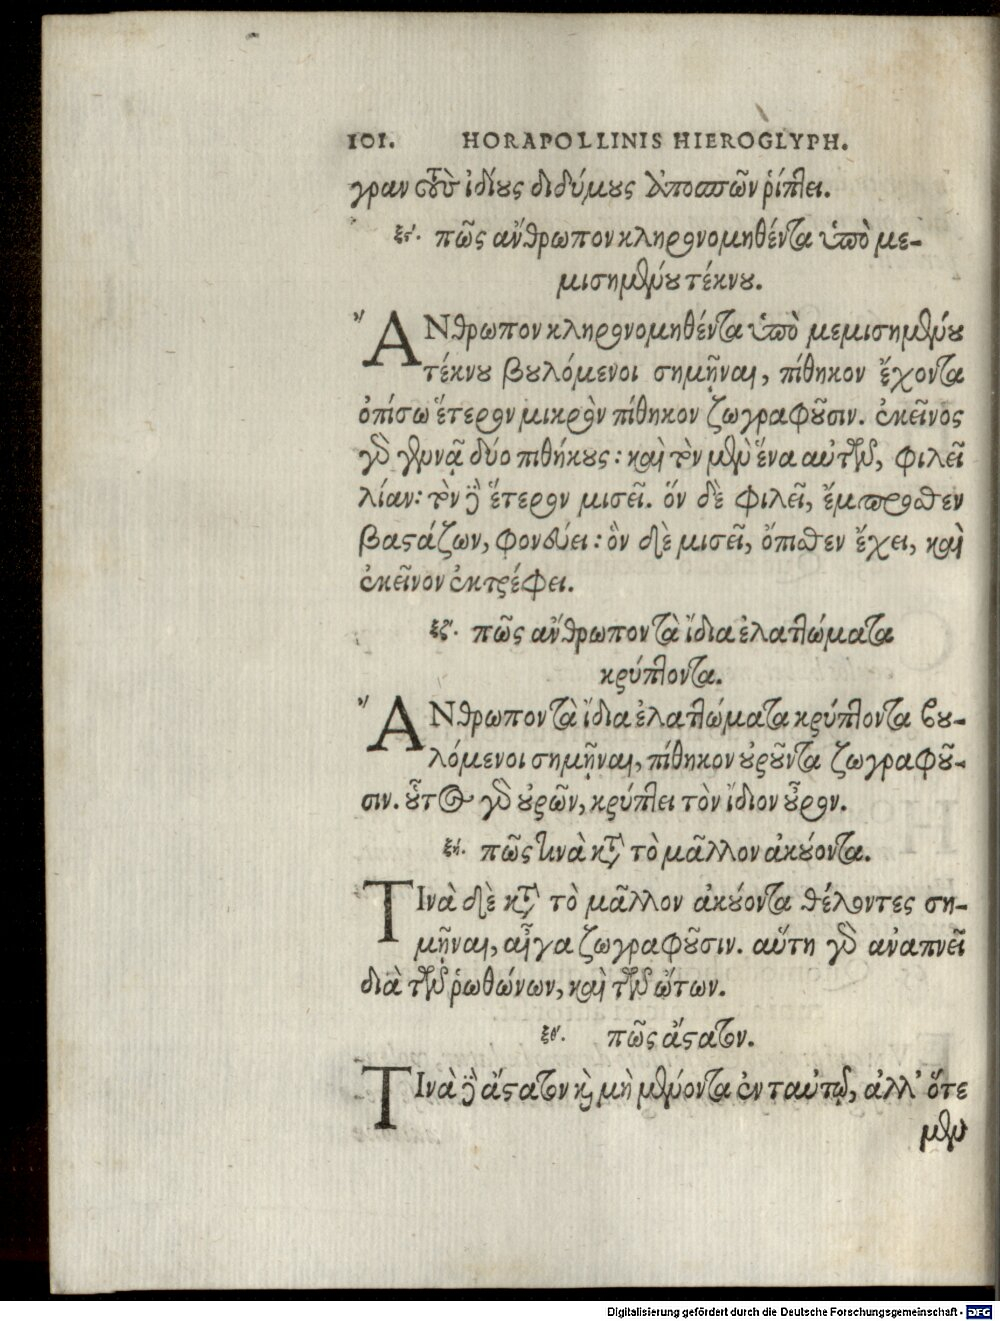 101. HORAPOLLINIS HIEROGLYPH.
γραν τοὺς ἰδίους διδύμους ἀποσπῶν ῥίπτει.
ξϛʹ. πῶς ἄνθρωπον κληρονομηθέντα ὑπὸ με-
μισημένου τέκνου.
ἌΝθρωπον κληρονομηθέντα ὑπὸ μεμισημένου
τέκνου βουλόμενοι σημῆναι, πίθηκον ἔχοντα
ὀπίσω ἕτερον μικρὸν πίθηκον ζωγραφοῦσιν. ἐκεῖνος
γὰρ γεννᾷ δύο πιθήκους: καὶ τὸν μὲν ἕνα αὐτῶν, φιλεῖ
λίαν: τὸν δὲ ἕτερον μισεῖ. ὅν δὲ φιλεῖ, ἔμπροσθεν
βαστάζων, φονεύει: ὃν δὲ μισεῖ, ὄπισθεν ἔχει, καὶ
ἐκεῖνον ἐκτρέφει.
ξζʹ. πῶς ἄνθρωπον τὰ ἴδια ἐλαττώματα
κρύπτοντα.
ἌΝθρωπον τὰ ἴδια ἐλαττώματα κρύπτοντα βου-
λόμενοι σημῆναι, πίθηκον οὐροῦντα ζωγραφοῦ-
σιν. οὗτος γὰρ οὐρῶν, κρύπτει τὸν ἴδιον οὖρον.
ξηʹ. πῶς τινὰ κατὰ τὸ μᾶλλον ἀκούοντα.
ΤΙνὰ δὲ κατὰ τὸ μᾶλλον ἀκούοντα θέλοντες ση-
μῆναι, αἶγα ζωγραφοῦσιν. αὕτη γὰρ ἀναπνεῖ
διὰ τῶν ῥωθώνων, καὶ τῶν ὤτων.
ξθʹ. πῶς ἄστατον.
ΤΙνὰ δὲ ἄστατον καὶ μὴ μένοντα ἐν ταὐτῷ, ἀλλ' ὅτε
μὲν
Digitalisierung gefördert durch die Deutsche Forschungsgemeinschaft - DFG